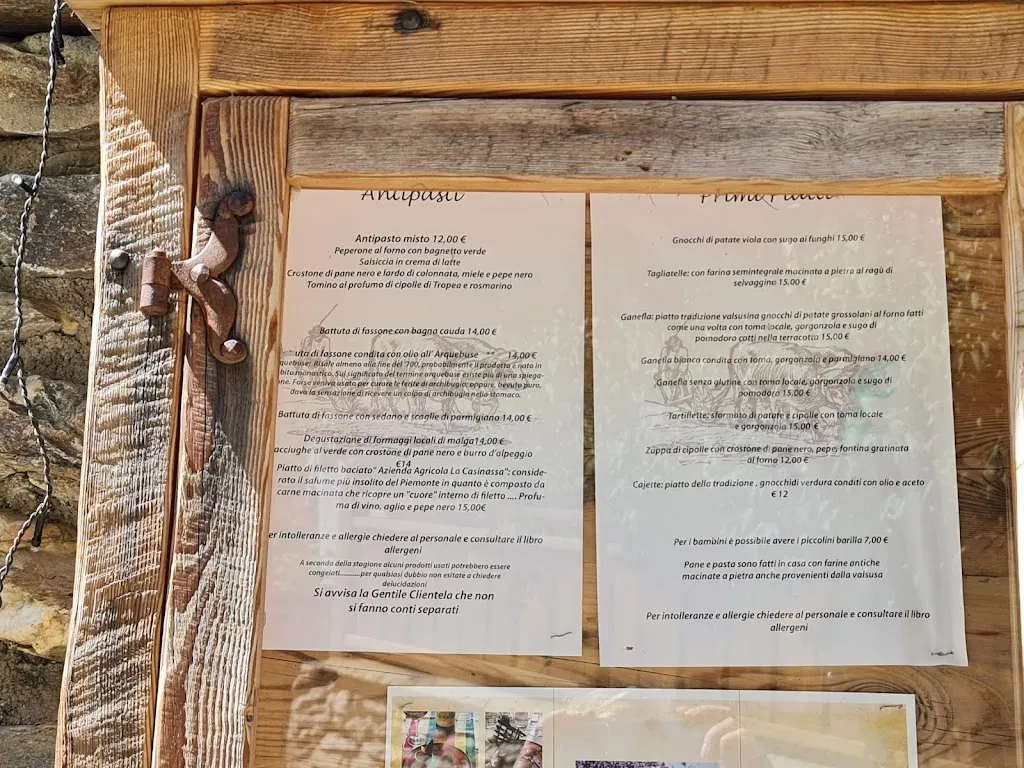 Antipasti
Antipasto misto 12,00 €
Peperone al forno con bagnetto verde
Salsiccia in crema di latte
Crostone di pane nero e lardo di colonnata, miele e pepe nero
Tomino al profumo di cipolle di Tropea e rosmarino
Battuta di fassone con bagna cauda 14,00 €
uta di fassone condita con olio all' Arquebuse 14,00 €
quebuse: Risale almeno alla fine del 700, probabilmente il prodotto è nato in
bito monastico. Sul significato del termine arquebuse esiste più di una spiega-
ne. Forse veniva usato per curare le ferite di archibugio; oppure, bevuto puro,
dava la sensazione di ricevere un colpo di archibugio nello stomaco.
Battuta di fassone con sedano e scaglie di parmigiano 14,00 €
Degustazione di formaggi locali di malga14,00 €
acciughe al verde con crostone di pane nero e burro d'alpeggio
€14
Piatto di filetto baciato" Azienda Agricola La Casinassa": conside-
rato il salume più insolito del Piemonte in quanto è composto da
carne macinata che ricopre un "cuore" interno di filetto .... Profu-
ma di vino, aglio e pepe nero 15,00€
er intolleranze e allergie chiedere al personale e consultare il libro
allergeni
A seconda della stagione alcuni prodotti usati potrebbero essere
congelati...........per qualsiasi dubbio non esitate a chiedere
delucidazioni
Si avvisa la Gentile Clientela che non
si fanno conti separati
Primi Piatti
Gnocchi di patate viola con sugo ai funghi 15,00 €
Tagliatelle: con farina semintegrale macinata a pietra al ragù di
selvaggina 15,00 €
Ganefla: piatto tradizione valsusina gnocchi di patate grossolani al forno fatti
come una volta con toma locale, gorgonzola e sugo di
pomodoro cotti nella terracotta 15,00 €
Ganefla bianca condita con toma, gorgonzola e parmigiano 14,00 €
Ganefla senza glutine con toma locale, gorgonzola e sugo di
pomodoro 15,00 €
Tartiflette: sformato di patate e cipolle con toma locale
e gorgonzola 15,00 €
Zuppa di cipolle con crostone di pane nero, pepe, fontina gratinata
al forno 12,00 €
Cajette: piatto della tradizione , gnocchidi verdura conditi con olio e aceto
€ 12
Per i bambini è possibile avere i piccolini barilla 7,00 €
Pane e pasta sono fatti in casa con farine antiche
macinate a pietra anche provenienti dalla valsusa
Per intolleranze e allergie chiedere al personale e consultare il libro
allergeni